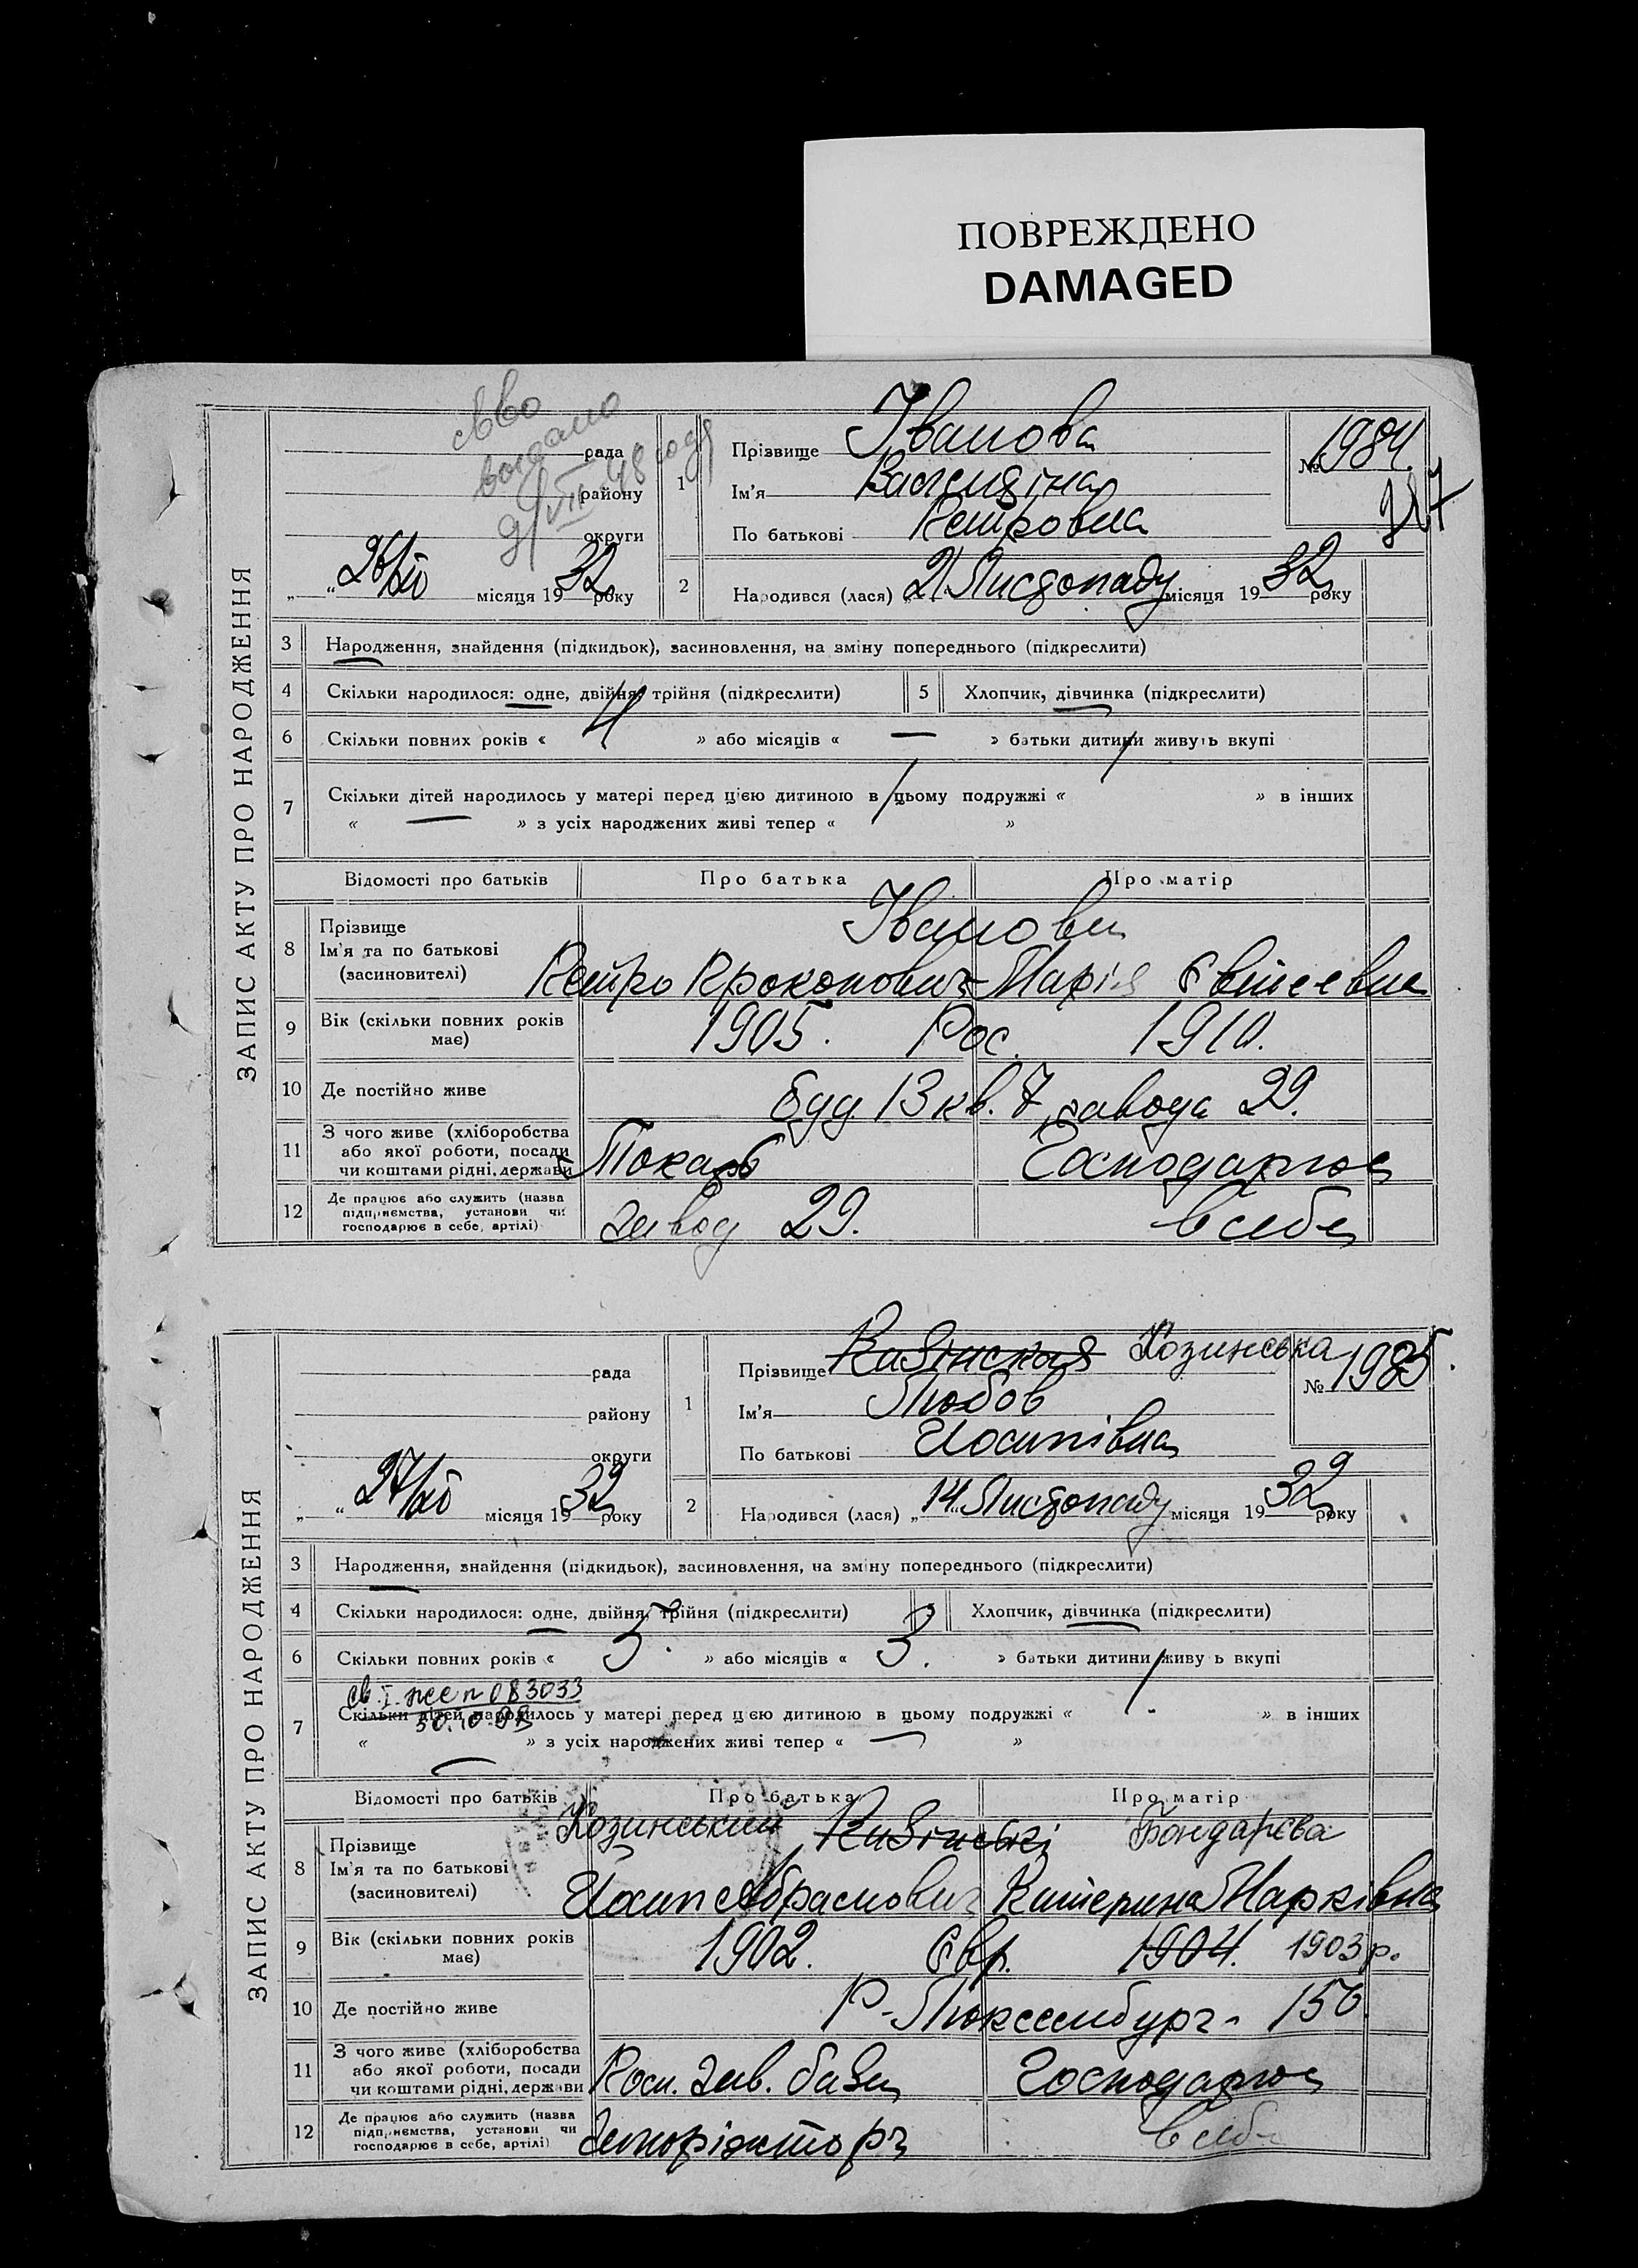 ПОВРЕЖДЕНО
DAMAGED
ЗАПИС АКТУ ПРО НАРОДЖЕННЯ
св-во
выдано
9/VII 48 года
рада
району
округи
„ “ 26/XI місяця 1932 року
1
Прізвище Іванова
Ім'я Валентіна
По батькові Петровна
№ 1984.
2
Народився (лася) „21“ Листопаду місяця 1932 року
3 Народження, знайдення (підкидьок), засиновлення, на зміну попереднього (підкреслити)
4 Скільки народилося: одне, двійня, трійня (підкреслити) 5 Хлопчик, дівчинка (підкреслити)
6 Скільки повних років « 4 » або місяців « — » батьки дитини живуть вкупі
7 Скільки дітей народилось у матері перед цією дитиною в цьому подружжі « » в інших
« — » з усіх народжених живі тепер « »
Відомості про батьків Про батька Про матір
8 Прізвище
Ім'я та по батькові
(засиновителі)
Іванови
Петро Прокопович Марія Євтсевна
9 Вік (скільки повних років
має)
1905. Рос. 1910.
10 Де постійно живе буд 13 кв. 7 завода 29.
11 З чого живе (хліборобства
або якої роботи, посади
чи коштами рідні, держави
Токарь Господарює
12 Де працює або служить (назва
підприємства, установи чи
господарює в себе, артілі)
завод 29. в себе
ЗАПИС АКТУ ПРО НАРОДЖЕННЯ
рада
району
округи
„ “ 27/XI місяця 1932 року
1
Прізвище Казінская Козинська
Ім'я Любов
По батькові Йосипівна
№ 1985.
2
Народився (лася) „14“ Листопаду місяця 1932 року
3 Народження, знайдення (підкидьок), засиновлення, на зміну попереднього (підкреслити)
4 Скільки народилося: одне, двійня, трійня (підкреслити) 5 Хлопчик, дівчинка (підкреслити)
6 Скільки повних років « 3. » або місяців « 3. » батьки дитини живуть вкупі
св. I-ЖЕ n 083033
30.10.
7 Скільки дітей народилось у матері перед цією дитиною в цьому подружжі « » в інших
« — » з усіх народжених живі тепер « — »
Відомості про батьків Про батька Про матір
8 Прізвище
Ім'я та по батькові
(засиновителі)
Козинський Казінські Бондарєва
Йосип Абрамович Катерина Марківна
9 Вік (скільки повних років
має)
1902. Євр. 1904. 1903 р.
10 Де постійно живе Р-Люксембург- 156
11 З чого живе (хліборобства
або якої роботи, посади
чи коштами рідні, держави
зав. бази Господарює
12 Де працює або служить (назва
підприємства, установи чи
господарює в себе, артілі)
в себе